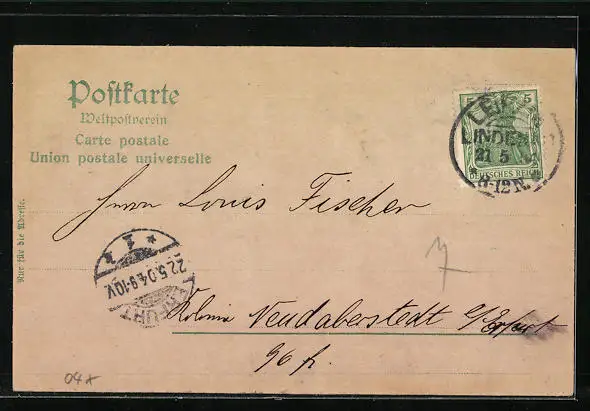 Postkarte
Weltpostverein
Carte postale
Union postale universelle
Nur für die Adresse.
5 5
DEUTSCHES REICH
LEIP
LINDEN
21 5
11-12 N.
Herrn Louis Fischer
ERFURT
22.5.04.9-10V.
* 1 1
7
Kolonie Neudaberstedt b/Erfurt
96 f.
04x